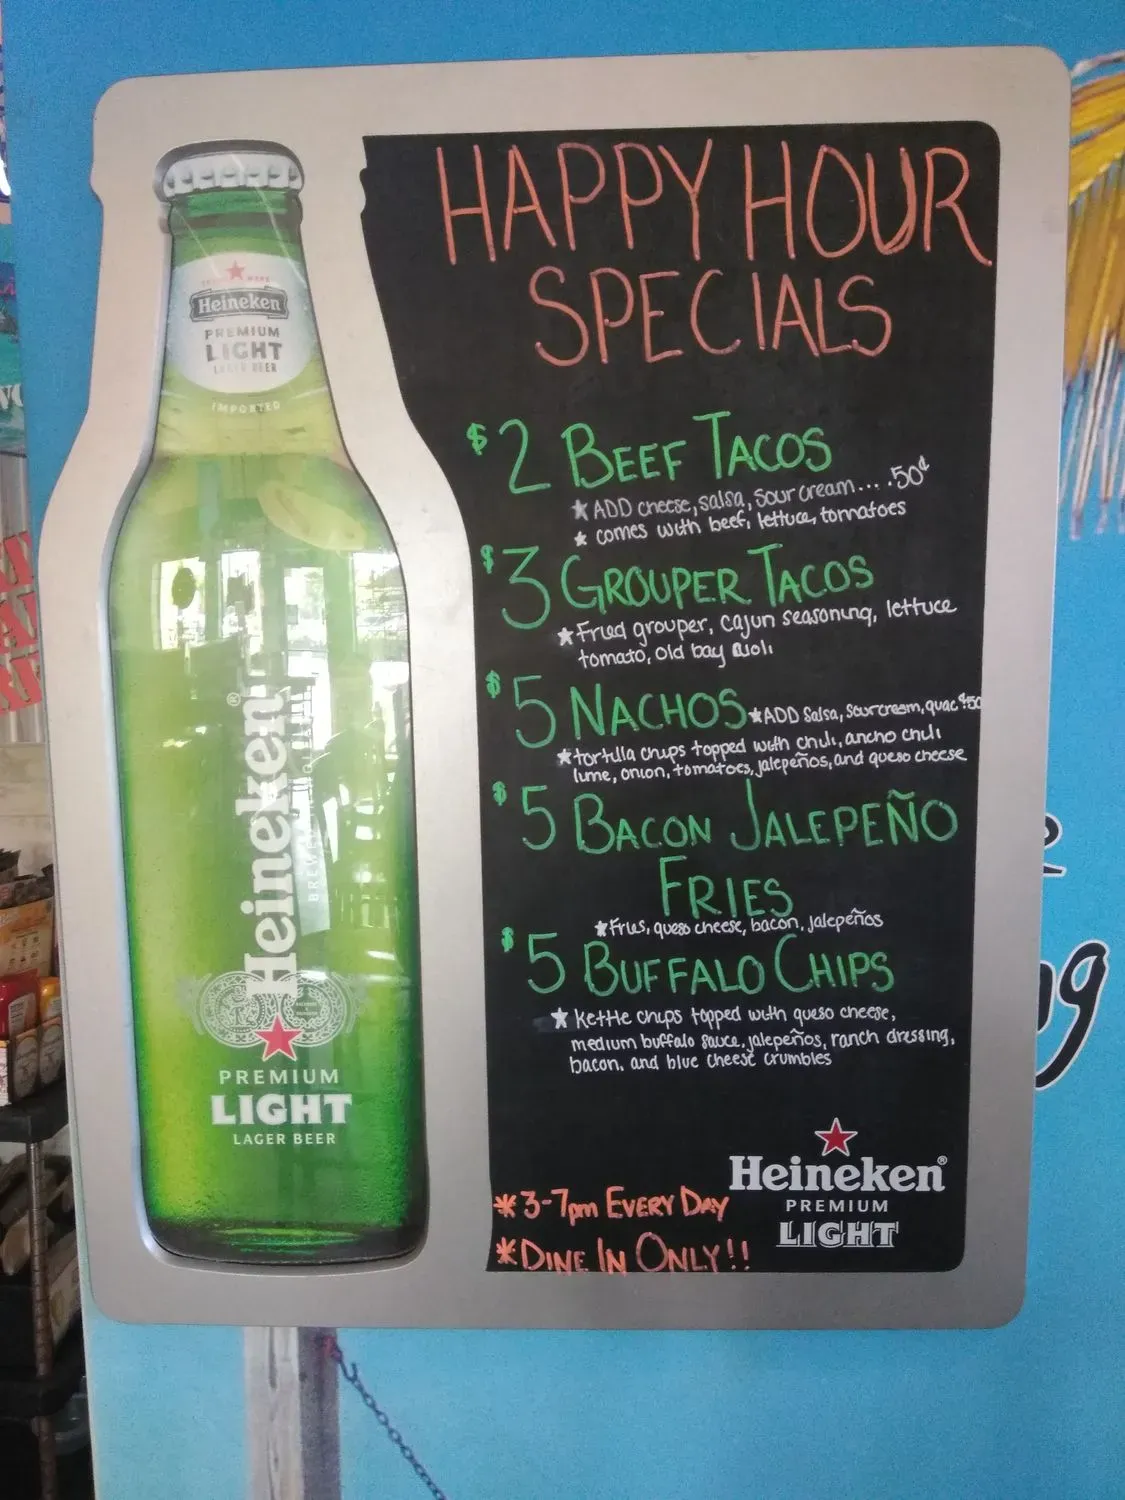 HAPPY HOUR
SPECIALS
$2 BEEF TACOS
★ ADD cheese, salsa, sour cream... .50¢
★ comes with beef, lettuce, tomatoes
$3 GROUPER TACOS
★ Fried grouper, cajun seasoning, lettuce
tomato, old bay aioli
$5 NACHOS ★ ADD Salsa, sourcream, guac
★ tortilla chips topped with chili, ancho chili
lime, onion, tomatoes, jalepeños, and queso cheese
$5 BACON JALEPEÑO
FRIES
★ Fries, queso cheese, bacon, jalepeños
$5 BUFFALO CHIPS
★ Kettle chips topped with queso cheese,
medium buffalo sauce, jalepeños, ranch dressing,
bacon, and blue cheese crumbles
* 3-7pm EVERY DAY
* DINE IN ONLY!!
Heineken®
PREMIUM
LIGHT
TRADE MARK
Heineken
PREMIUM
LIGHT
LAGER BEER
IMPORTED
Heineken®
PREMIUM
LIGHT
LAGER BEER